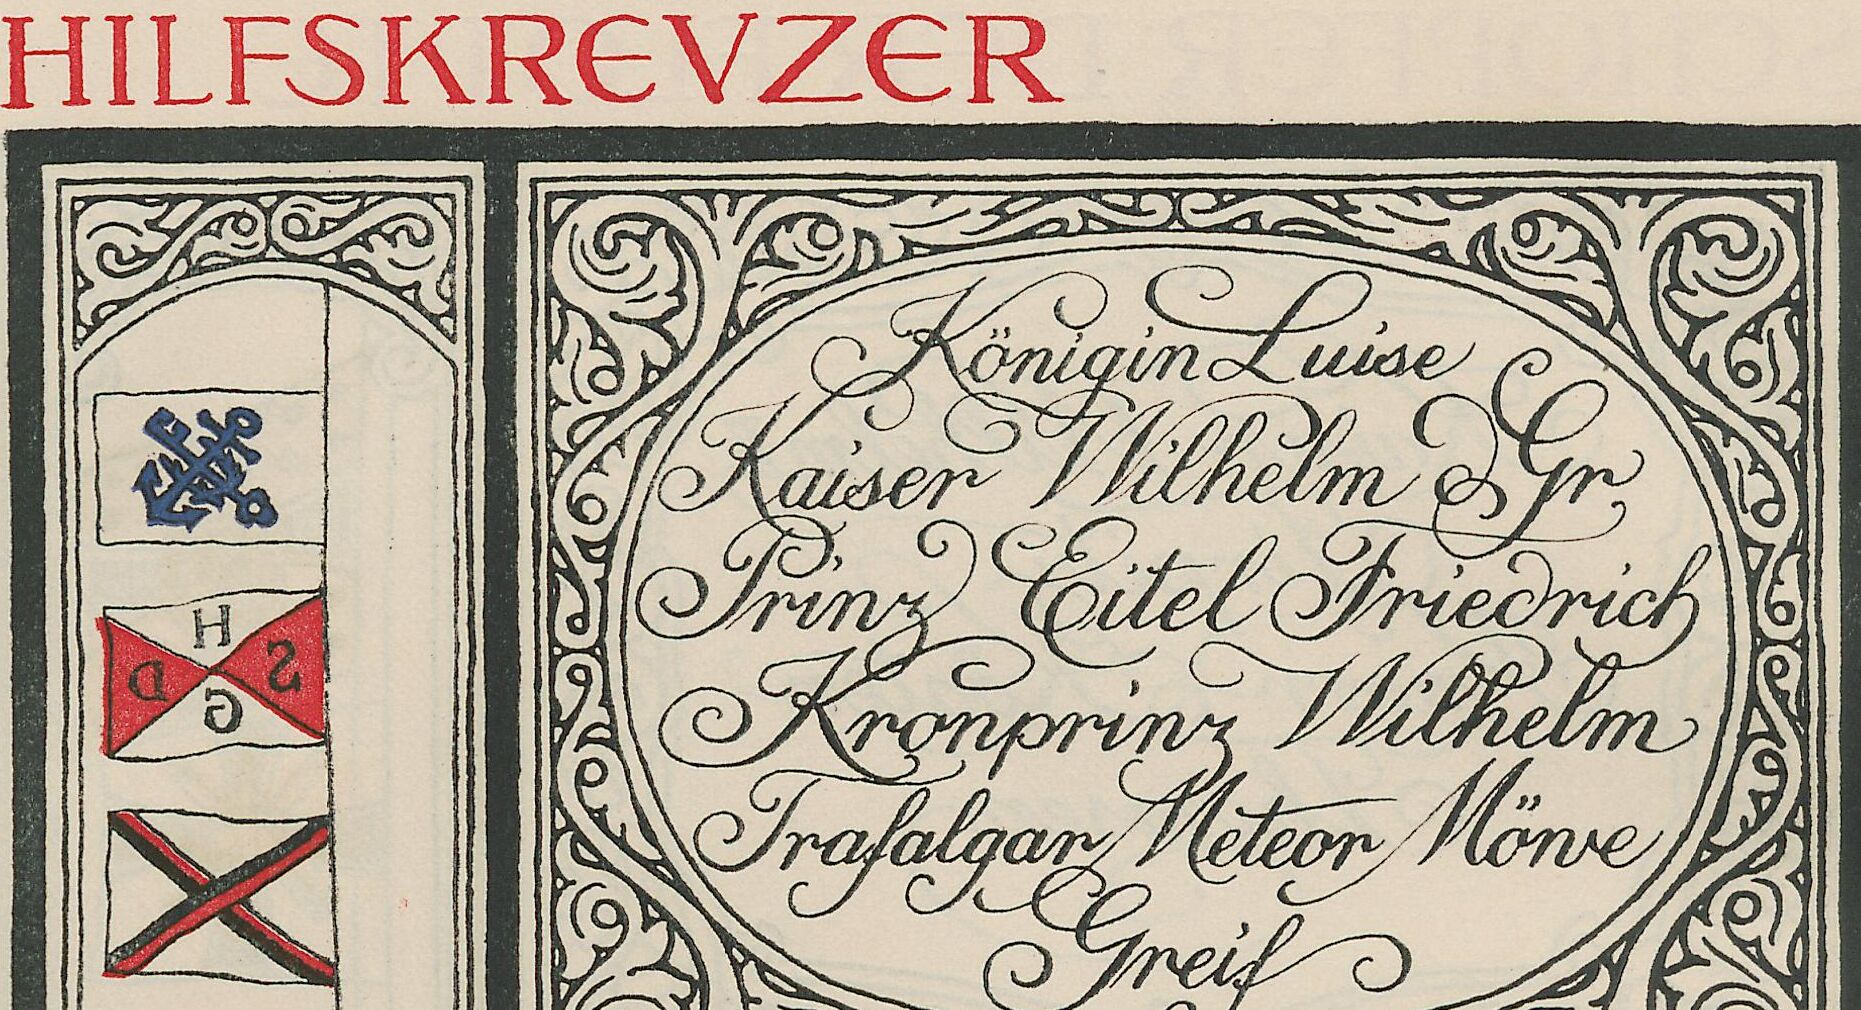 HILFSKREVZER
Königin Luise
Kaiser Wilhelm d Gr.
Prinz Eitel Friedrich
Kronprinz Wilhelm
Trafalgar Meteor Möwe
Greif
H
D S
G